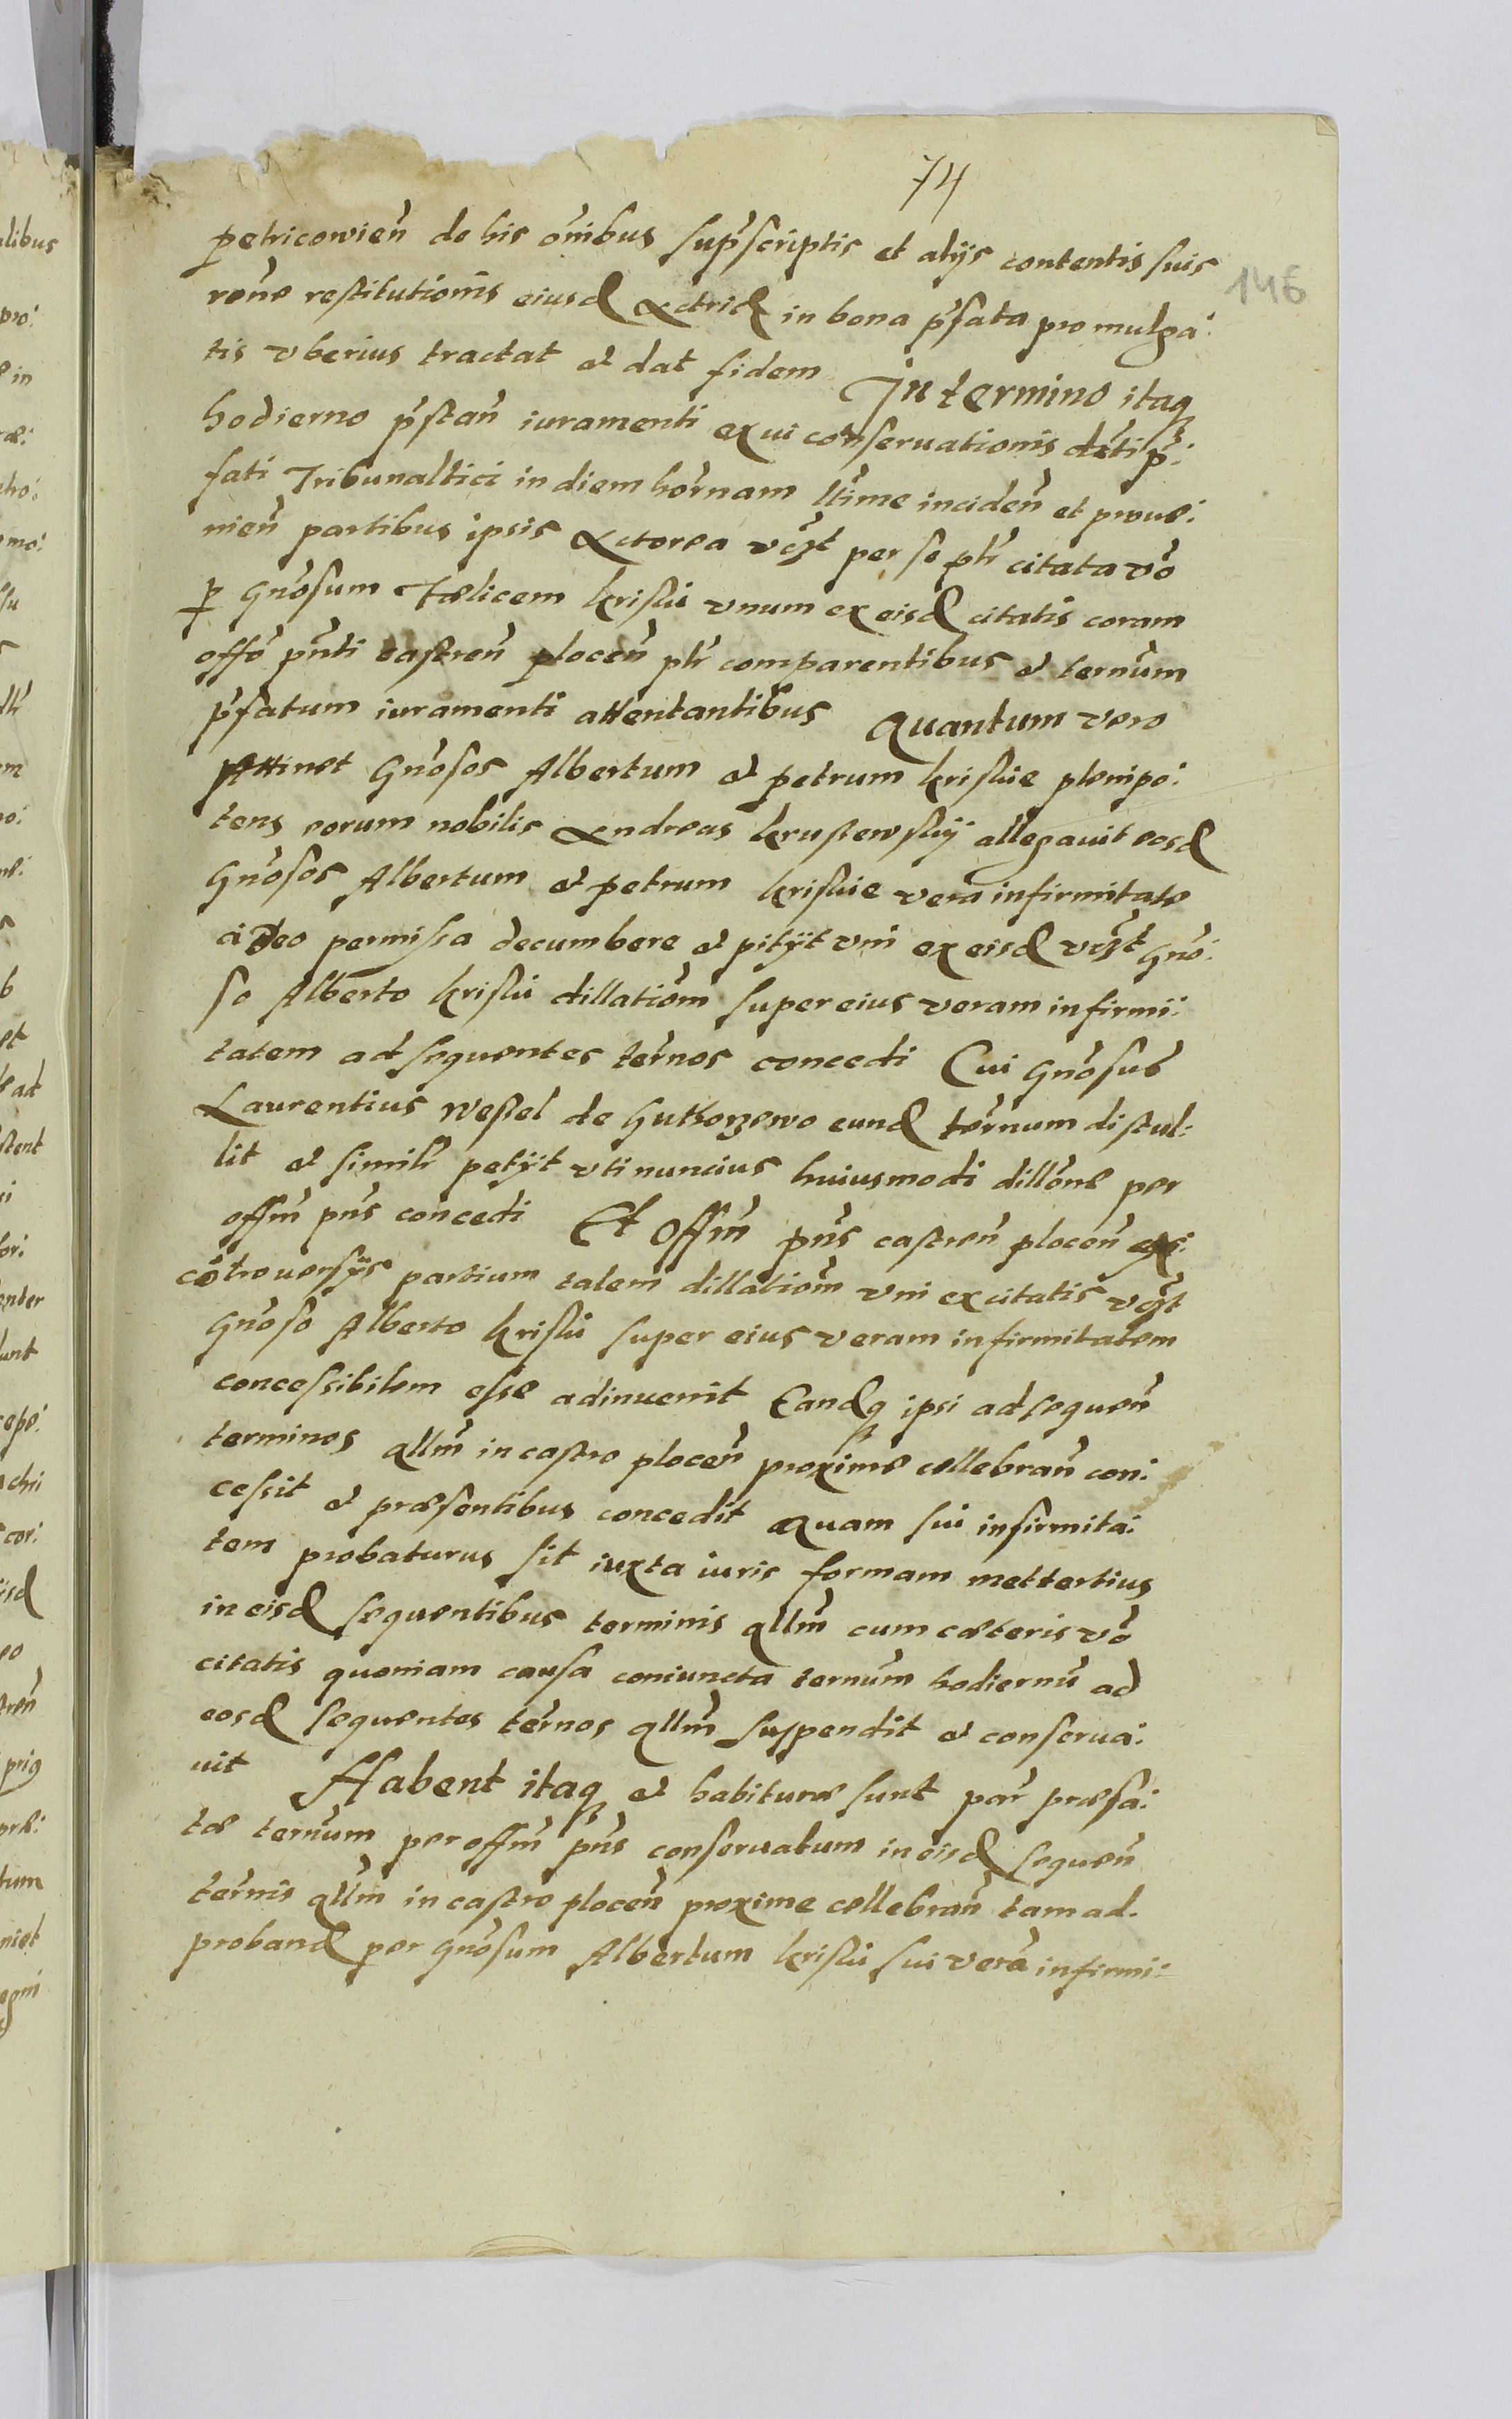 74
146
petricowien̄ de his om̄ibus sup̄scriptis et alijs contentis suis
rōne restitutionis eiusd Actricꝭ in bona p̄fata promulga:
tis vberius tractat et dat fidem In termino itaqꝫ
hodierno p̄stan̄ iuramenti ex ui conseruationis dc̄ti p̄:
fati Tribunaltici in diem hor̄nam lt̄ime inciden̄ et proue:
nien̄ partibus ipsis Actorea vꝫt per se plr̄ citata vō
ꝑ Gnōsum Fælicem kriski vnum ex eisd citatis coram
offō pn̄ti castren̄ plocen̄ plr̄ comparentibus et ter̄num
p̄fatum iuramenti attentantibus Quantum vero
Attinet Gnōsos Albertum et petrum kriskie plenipo:
tens eorum nobilis Andreas krustewskij allegauit eosd
Gnōsos Albertum et petrum kriskie vera infirmitate
a deo permissa decumbere et pitijt vni ex eisd vꝫt Gnō:
so Alberto kriski dillatiōm super eius veram infirmi:
tatem ad sequentes ter̄nos concedi Cui Gnōsus
Laurentius Wessel de Guthorzewo eund ter̄num distul:
lit et similr̄ petijt vti nuncius huiusmodi dillōne per
offm̄ pn̄s concedi Et Offm̄ pn̄s castren̄ plocen̄ ex:
cōtrouersijs partium talem dillatiom̄ vni ex citatis vꝫt
Gnōso Alberto kriski super eius veram infirmitatem
concessibilem esse adinuenit Eandqꝫ ipsi ad sequen̄
terminos qllm̄ in castro plocen̄ proxime cellebran̄ con:
cessit et præsentibus concedit Quam sui infirmita:
tem probaturus sit iuxta iuris formam mettertius
in eisd sequentibus terminis qllm̄ cum cæteris vō
citatis quoniam causa coniuncta ter̄num hodiernū ad
eosd sequentes ter̄nos qllm̄ suspendit et conserua:
uit Habent itaqꝫ et habituræ sunt par̄ præfa:
tæ ter̄num per offm̄ pn̄s conseruatum in eisd sequen̄
ter̄nis qllm̄ in castro plocen̄ proxime cellebran̄ tam ad
proband per Gnōsum Albertum kriski sui verā infirmi: